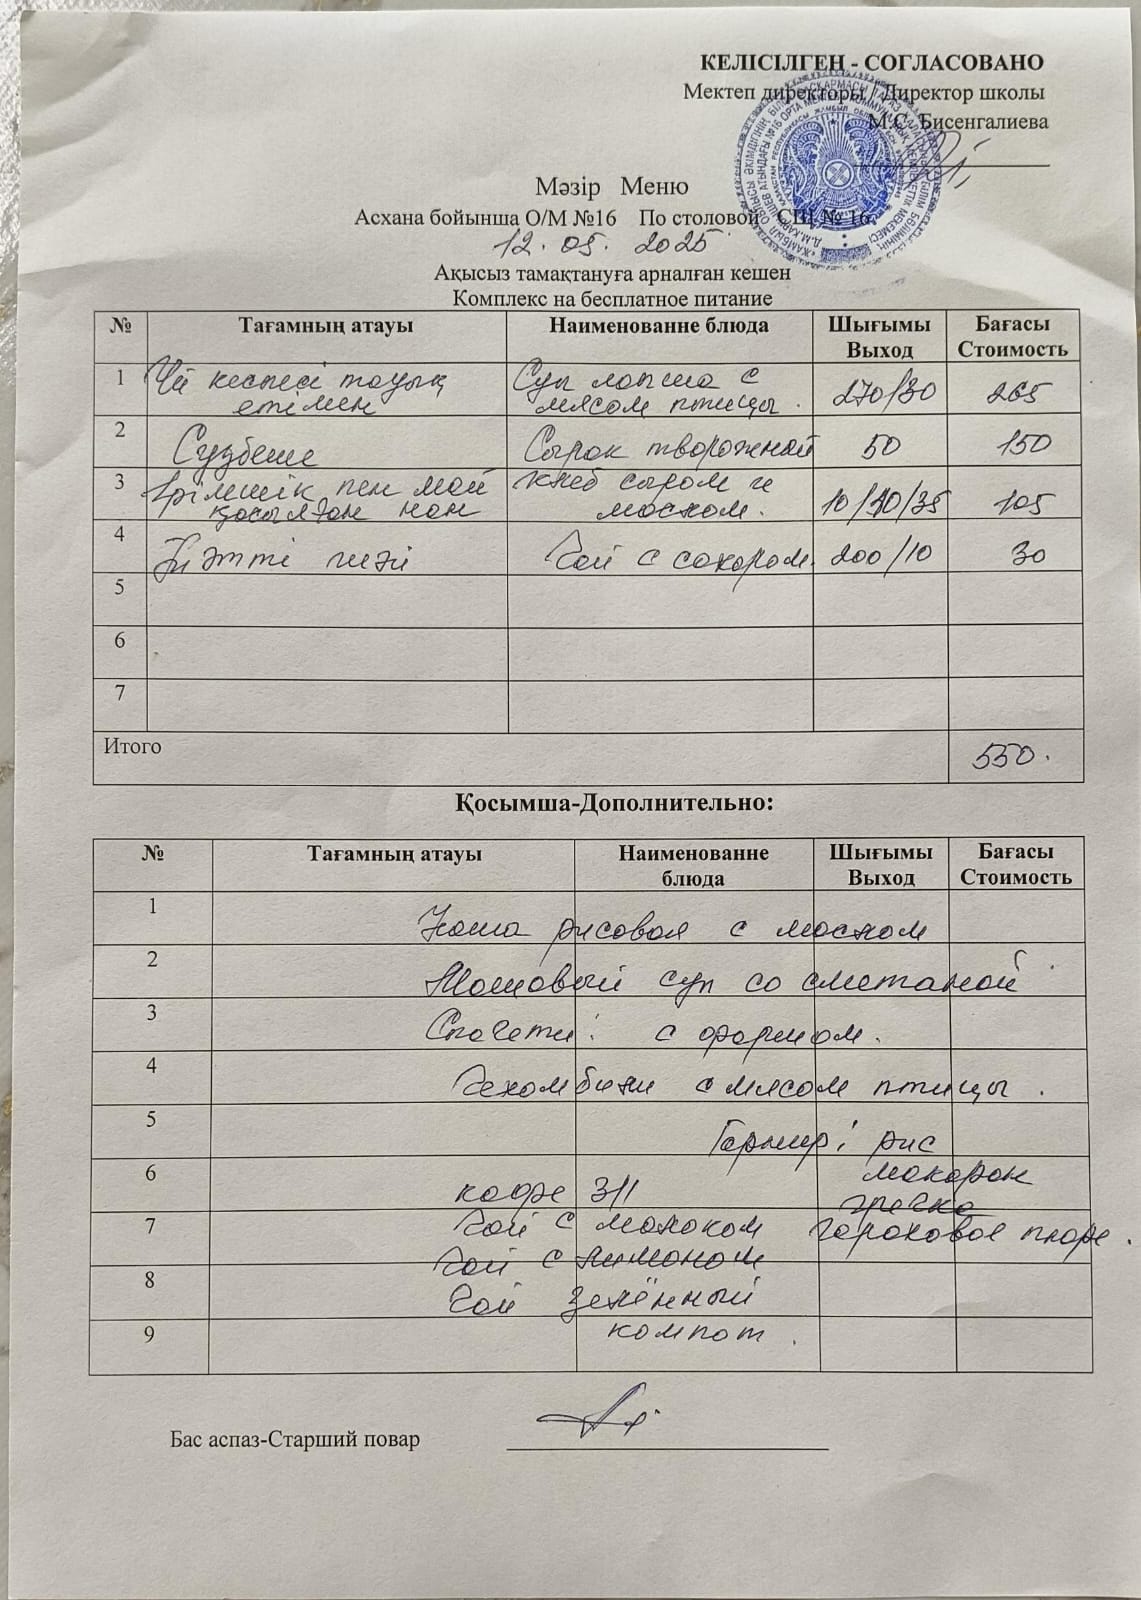 КЕЛІСІЛГЕН - СОГЛАСОВАНО
Мектеп директоры / Директор школы
М.С. Бисенгалиева
Мәзір Меню
Асхана бойынша О/М №16 По столовой СШ № 16
12. 05. 2025
Ақысыз тамақтануға арналған кешен
Комплекс на бесплатное питание
№ Тағамның атауы Наименованне блюда Шығымы Выход Бағасы Стоимость
1 Үй кеспесі тауық етімен Суп лапша с мясом птицы. 270/30 265
2 Сүзбеше Сырок творожный 50 150
3 Ірімшік пен май қосылған нан хлеб сыром и маслом. 10/10/35 105
4 Тәтті шәй Чай с сахаром. 200/10 30
5
6
7
Итого 550.
Қосымша-Дополнительно:
№ Тағамның атауы Наименованне блюда Шығымы Выход Бағасы Стоимость
1 Каша рисовая с маслом
2 Машовый суп со сметаной
3 Спагети с фаршом.
4 с мясом птицы.
5 Гарнир: рис
6 кофе 3/1 макарон
гречка
7 Чай с молоком гороховое пюре.
Чай с лимоном
8 Чай зелённый
9 компот.
Бас аспаз-Старший повар